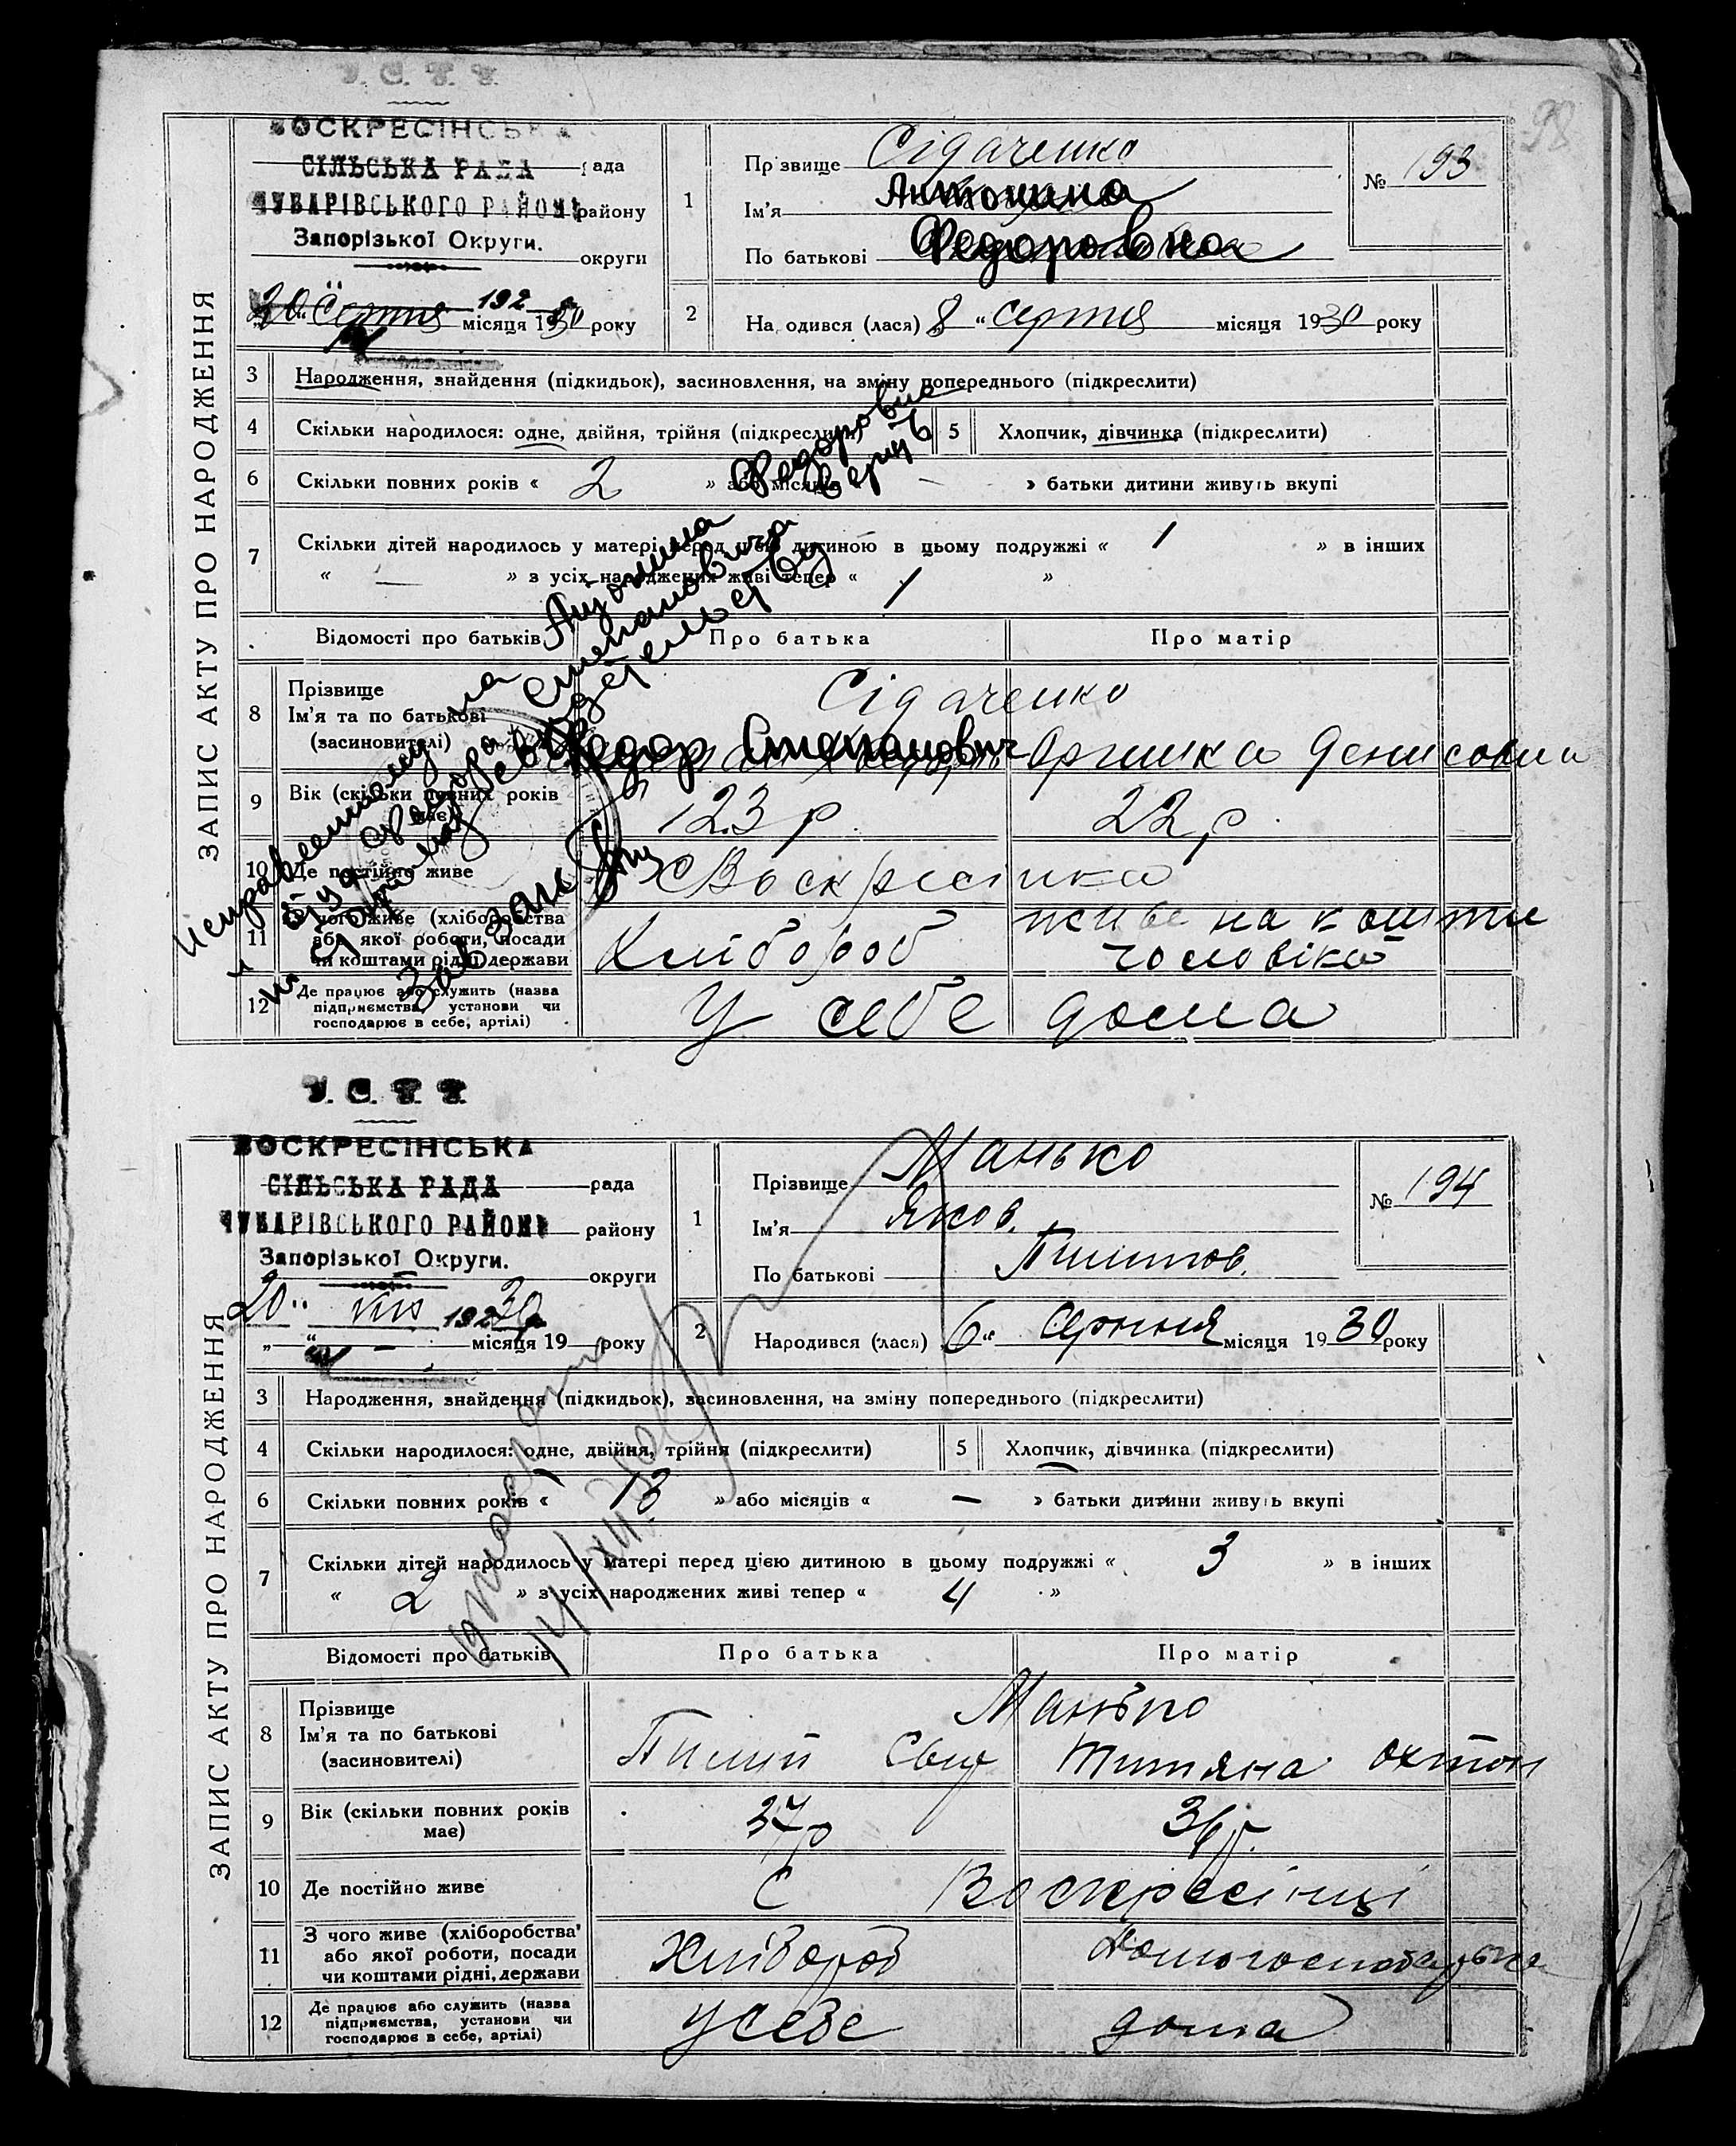 У. С. Р. Р.
38
ВОСКРЕСІНСЬКА
СІЛЬСЬКА РАДА рада
ЧУБАРІВСЬКОГО РАЙОНУ району
Запорізької Округи.
округи
20 Серпня 192
місяця 1930 року
1
Прізвище Сідаченко
Ім'я Антонина
По батькові Федоровна
№ 193
2
Народився (лася) 8 " серпня місяця 1930 року
ЗАПИС АКТУ ПРО НАРОДЖЕННЯ
3 Народження, знайдення (підкидьок), засиновлення, на зміну попереднього (підкреслити)
4 Скільки народилося: одне, двійня, трійня (підкреслити) 5 Хлопчик, дівчинка (підкреслити)
6 Скільки повних років « 2 » або місяців « — » батьки дитини живуть вкупі
7 Скільки дітей народилось у матері перед цією дитиною в цьому подружжі « 1 » в інших
« — » з усіх народжених живі тепер « 1 »
Відомості про батьків Про батька Про матір
8 Прізвище
Ім'я та по батькові
(засновителі)
Сідаченко
Федор Степанович Оришка Денисовна
9 Вік (скільки повних років має) 23 р 22 р
10 Де постійно живе С Воскресінка
11 З чого живе (хліборобства
або якої роботи, посади
чи коштами рідні, держави
Хлібороб живе на кошти
чоловіка
12 Де працює або служить (назва
підприємства, установи чи
господарює в себе, артілі)
У себе дома
Исправленному на Антонина Федоровна
и отца Федора Степановича верить
У. С. Р. Р.
ВОСКРЕСІНСЬКА
СІЛЬСЬКА РАДА рада
ЧУБАРІВСЬКОГО РАЙОНУ району
Запорізької Округи.
округи
20 " VIII 1930
" — місяця 19 року
1
Прізвище Манько
Ім'я Яков.
По батькові Пилипов.
№ 194
2
Народився (лася) 6 " Серпня місяця 1930 року
ЗАПИС АКТУ ПРО НАРОДЖЕННЯ
3 Народження, знайдення (підкидьок), засиновлення, на зміну попереднього (підкреслити)
4 Скільки народилося: одне, двійня, трійня (підкреслити) 5 Хлопчик, дівчинка (підкреслити)
6 Скільки повних років « 13 » або місяців « — » батьки дитини живуть вкупі
7 Скільки дітей народилось у матері перед цією дитиною в цьому подружжі « 3 » в інших
« 2 » з усіх народжених живі тепер « 4 »
Відомості про батьків Про батька Про матір
8 Прізвище
Ім'я та по батькові
(засиновителі)
Манько
Пилип Титяна
9 Вік (скільки повних років
має)
37 р 36 р.
10 Де постійно живе С Воскресінці
11 З чого живе (хліборобства
або якої роботи, посади
чи коштами рідні, держави
Хлібороб Домогосподарька
12 Де працює або служить (назва
підприємства, установи чи
господарює в себе, артілі)
У себе дома